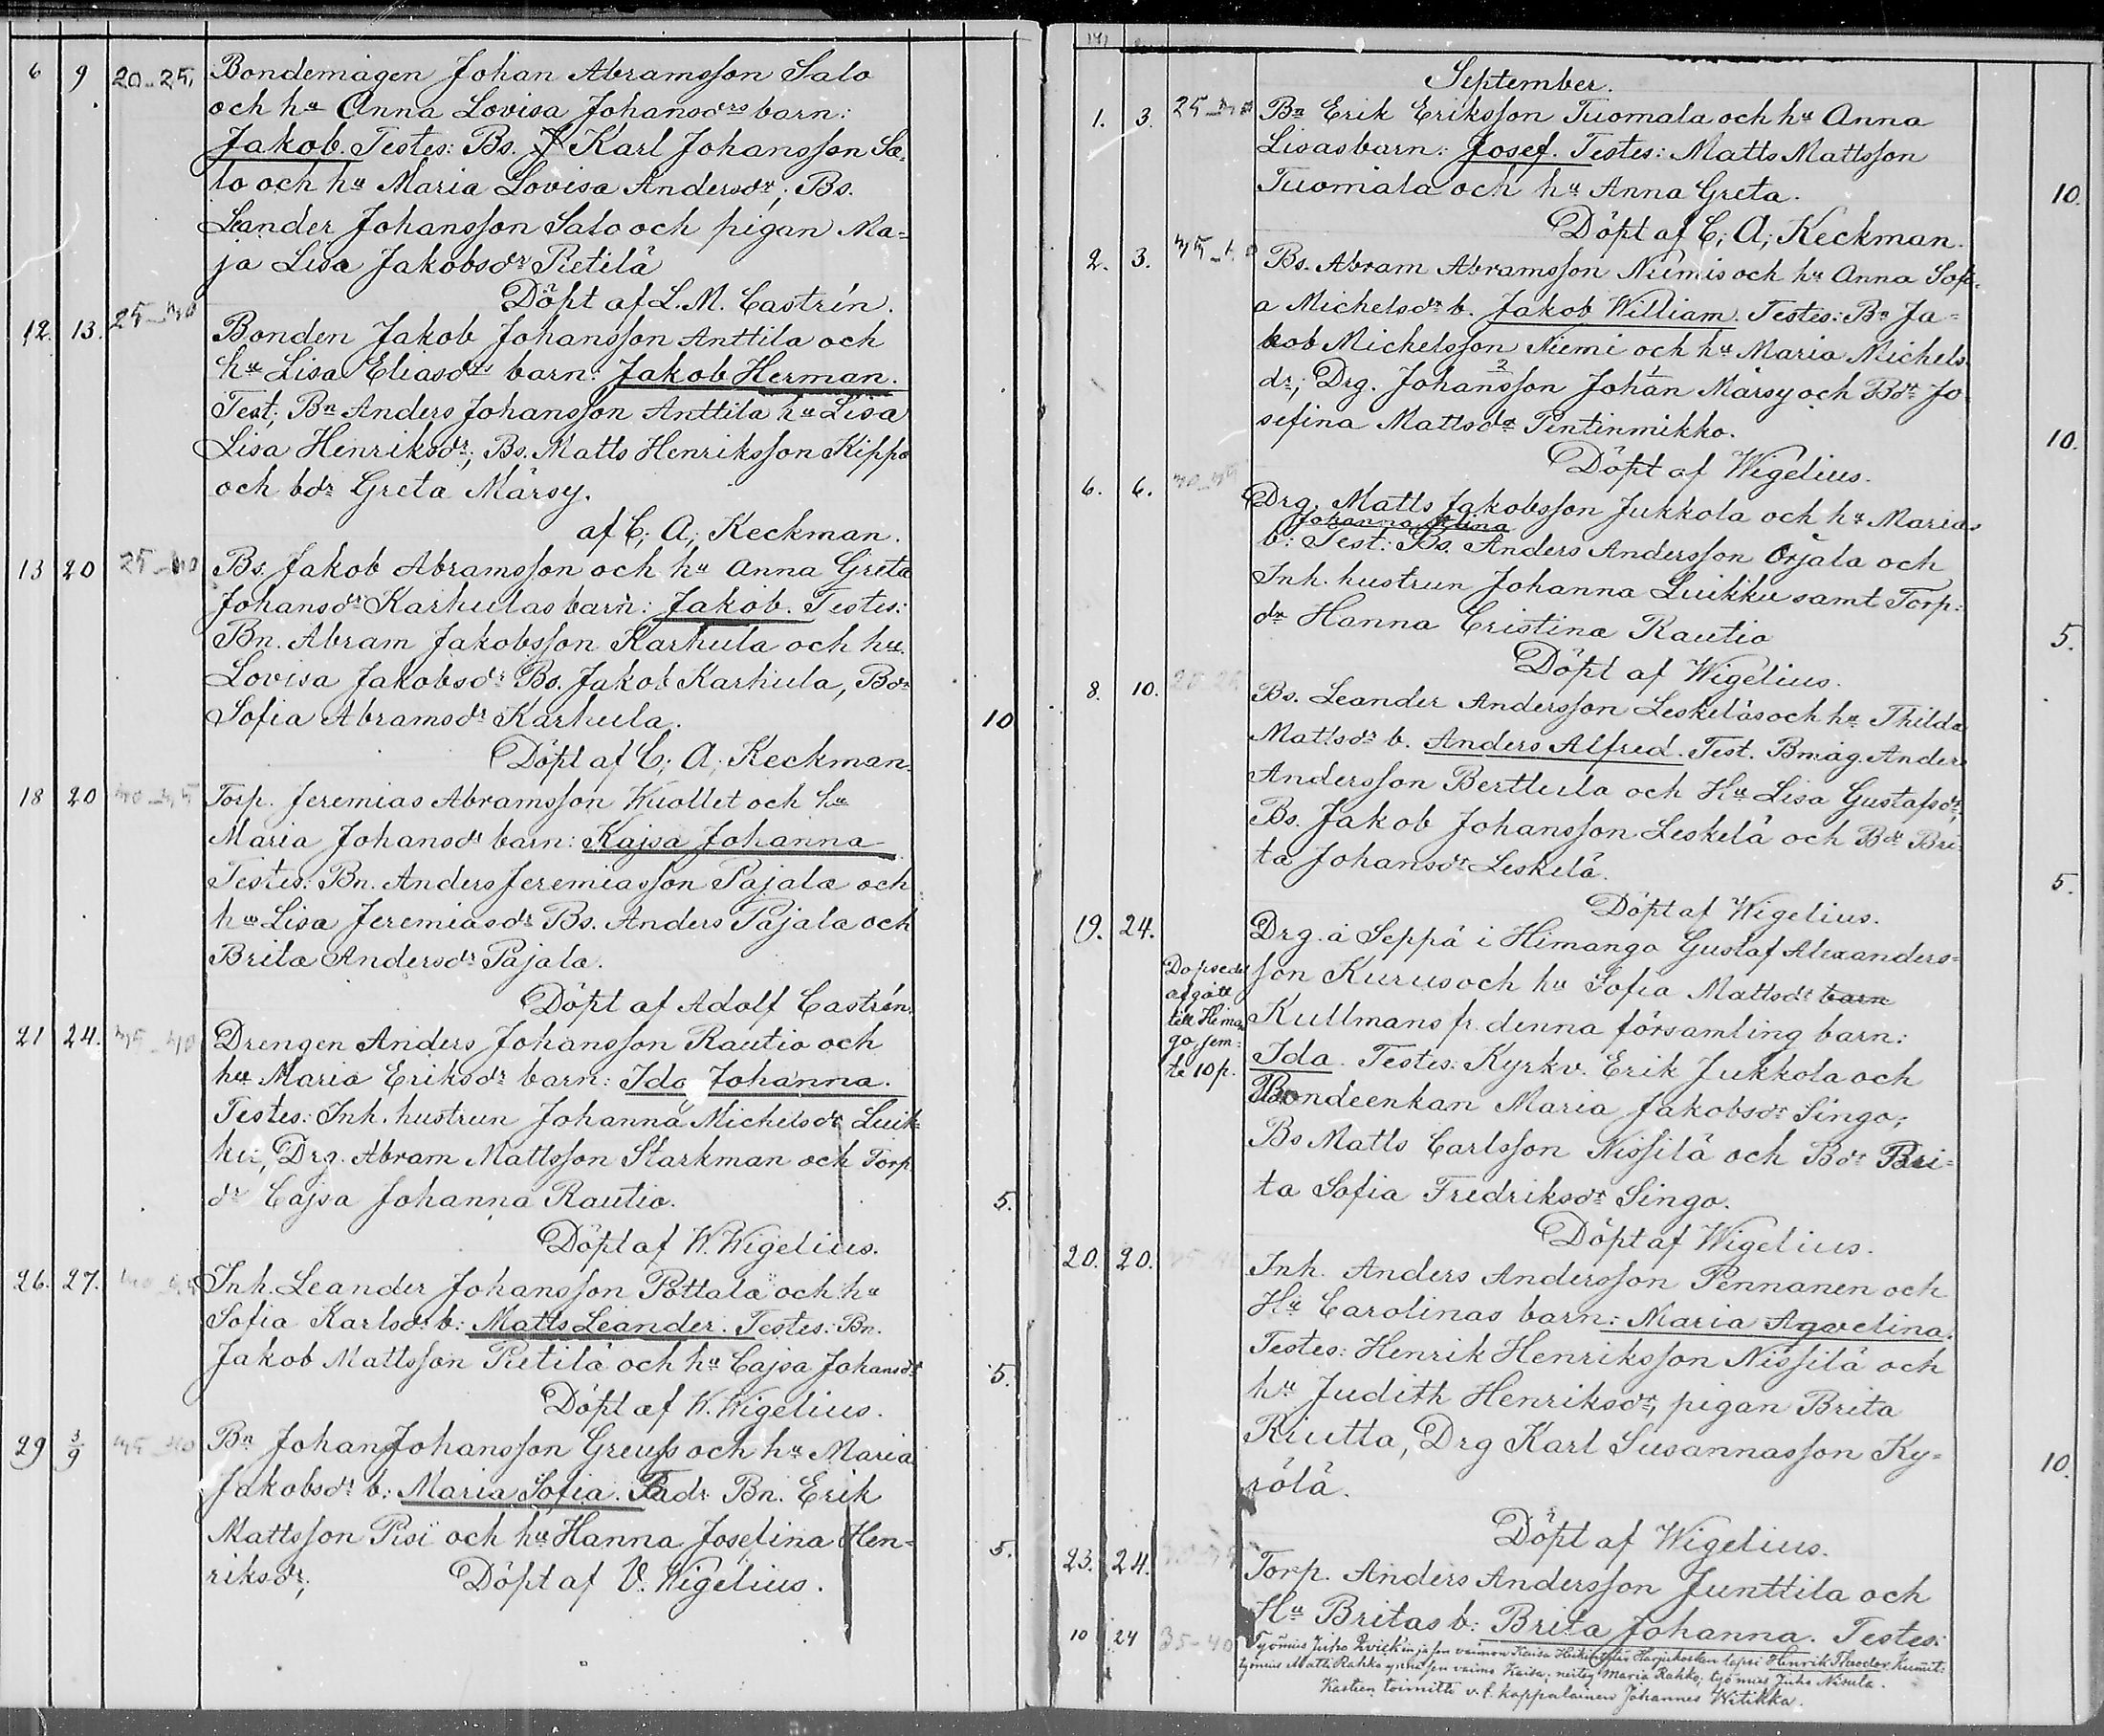 6 9 20-25 Bondemågen Johan Abramsson Salo
och hu Anna Lovisa Johansdrs barn:
Jakob. Testes: Bs. Karl Johansson Sa-
lo och hu Maria Lovisa Andersdr; Bs.
Leander Johansson Salo och pigan Ma-
ja Lisa Jakobsdr Pietilä
Döpt af L. M. Castrén.
12 13. 25-30 Bonden Jakob Johansson Anttila och
hu Lisa Eliasdrs barn: Jakob Herman.
Test; Bn Anders Johansson Anttila hu Lisa
Lisa Henriksdr; Bs. Matts Henriksson Kippo
och bdr Greta Märsy.
af C; A; Keckman.
13 20 25-30 Bs. Jakob Abramsson och hu Anna Greta
Johansdr Karhulas barn: Jakob. Testes:
Bn. Abram Jakobsson Karhula och hu
Lovisa Jakobsdr Bs. Jakob Karhula, Bdr
Sofia Abramsdr Karhula. 10
Döpt af C; A; Keckman.
18 20 30-35 Torp. Jeremias Abramsson Wuollet och hu
Maria Johansdr barn: Kajsa Johanna
Testes: Bn. Anders Jeremiasson Pajala och
hu Lisa Jeremiasdr Bs. Anders Pajala och
Brita Andersdr Pajala.
Döpt af Adolf Castrén.
21 24. 35-40 Drengen Anders Johansson Rautio och
hu Maria Eriksdr barn: Ida Johanna.
Testes: Inh. hustrun Johanna Michelsdr Luik-
ku, Drg. Abram Mattsson Starkman och Torp.
dr Cajsa Johanna Rautio. 5.
Döpt af W. Wigelius.
26. 27. Inh. Leander Johansson Pottala och hu
Sofia Karlsdr b: Matts Leander. Testes: Bn.
Jakob Mattsson Pietilä och hu Cajsa Johansdr 5.
Döpt af W. Wigelius.
29 3/9 35-40 Bn Johan Johansson Greuss och hu Maria
Jakobsdr b: Maria Sofia. Fadr Bn. Erik
Mattsson Pisi och hu Hanna Josefina Hen- 5.
riksdr; Döpt af V. Wigelius.
September.
1. 3. 25-30 Bn Erik Eriksson Tuomala och hu Anna
Lisas barn: Josef. Testes: Matts Mattsson
Tuomala och hu Anna Greta. 10.
Döpt af C; A; Keckman.
2. 3. Bs. Abram Abramsson Niemis och hu Anna Sofi-
a Michelsdr b. Jakob William. Testes: Bn Ja-
kob Michelsson Niemi och hu Maria Michels
dr; Drg. Johansson Johan Märsy och Bdr Jo
sefina Mattsdr Pentinmikko. 10.
Döpt af Wigelius.
6. 6. Drg. Matts Jakobsson Jukkola och hu Marias
Johanna Elina
b: Test: Bs. Anders Andersson Örjala och
Inh. hustrun Johanna Luikku samt Torp:
dr Hanna Cristina Rautio 5.
Döpt af Wigelius.
8. 10. Bs. Leander Andersson Leskeläs och hu Thilda
Mattsdr b. Anders Alfred. Test. Bmåg. Anders
Andersson Berttula och Hu Lisa Gustafsdr,
Bs. Jakob Johansson Leskelä och Bdr Bri-
ta Johansdr Leskelä. 5.
Döpt af Wigelius.
19. 24. Drg. å Seppä i Himango Gustaf Alexanders-
son Kurus och hu Sofia Mattsdr barn
Dopsedel
afgått
till Himan
go jem-
te 10 p.
Kullmans fr. denna församling barn:
Ida. Testes: Kyrkv. Erik Jukkola och
Bondeenkan Maria Jakobsdr Singo;
Bs Matts Carlsson Nissilä och Bdr Bri-
ta Sofia Fredriksdr Singo.
Döpt af Wigelius.
20. 20. Inh. Anders Andersson Pennanen och
Hu Carolinas barn: Maria Agvelina.
Testes: Henrik Henriksson Nissilä och
hu Judith Henriksdr, pigan Brita
Riutta, Drg Karl Susannasson Ky-
rölä. 10.
Döpt af Wigelius.
23. 24. Torp. Anders Andersson Junttila och
Hu Britas b: Brita Johanna. Testes:
10 24 35-40 Työmies Juho ja sen vaimon Kaisa Harjukosken lapsi Henrik Theodor. Kummit:
työmies Matti Rahko ynnä sen vaimo Kaisa; neitsy Maria Rahko; työmies Juho Nisula.
Kasteen toimitti v. t. kappalainen Johannes Witikka.